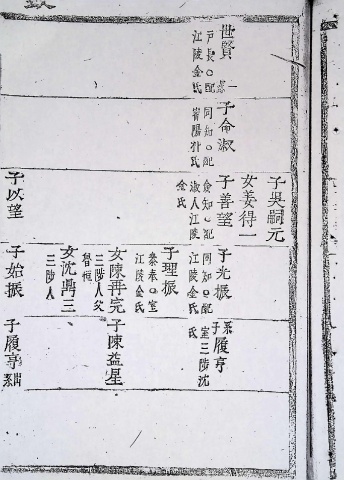 世賢
戶長○配
江陵金氏
子命淑
同知○配
陽朴氏
子吳嗣元
女姜得一
子善望
僉知○配
淑人江陵
金氏
子以望
子光振
同知○配
江陵金氏
子理振
奉○室
江陵金氏
女陳再完
三陟人父
恒
女沈鼎三
三陟人
子始振
系子履亨
室三陟沈
氏
子陳益星
子履亨